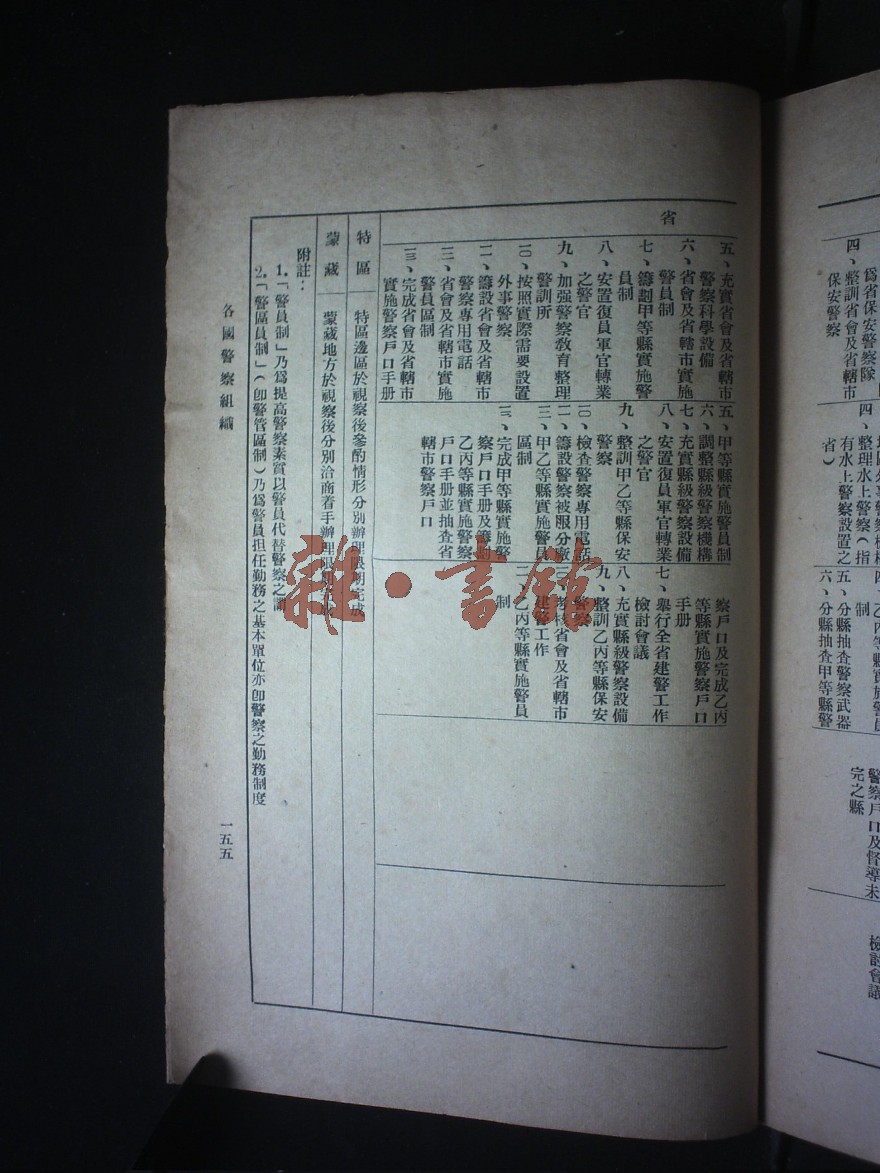 省
五、充實省會及省轄市
警察科學設備
六、省會及省轄市實施
警員制
七、籌劃甲等縣實施警
員制
八、安置復員軍官轉業
之警官
九、加强警察敎育整理
警訓所
一〇、按照實際需要設置
外事警察
一一、籌設省會及省轄市
警察專用電話
一二、省會及省轄市實施
警員區制
一三、完成省會及省轄市
實施警察戶口手册
五、甲等縣實施警員制
六、調整縣級警察機構
七、充實縣級警察設備
八、安置復員軍官轉業
之警官
九、整訓甲乙等縣保安
警察
一〇、檢查警察專用電話
一一、籌設警察被服分廠
一二、甲乙等縣實施警員
區制
一三、完成甲等縣實施警
察戶口手册及籌劃
乙丙等縣實施警察
戶口手册並抽查省
轄市警察戶口
察戶口及完成乙丙
等縣實施警察戶口
手册
七、舉行全省建警工作
檢討會議
八、充實縣級警察設備
九、整訓乙丙等縣保安
警察
考核省會及省轄市
建警工作
乙丙等縣實施警員
制
特區
特區邊區於視察後參酌情形分別辦理限期完成
蒙藏
蒙藏地方於視察後分別洽商着手辦理限
附註：
1.「警員制」乃爲提高警察素質以警員代替警察之
2.「警區員制」（卽警管區制）乃爲警員担任勤務之基本單位亦卽警察之勤務制度
各國警察組織
一五五
爲省保安警察隊
四、整訓省會及省轄市
保安警察
四、整理水上警察（指
有水上警察設置之
省）
乙丙等縣實施警員
制
五、分縣抽查警察武器
六、分縣抽查甲等縣警
警察戶口及督導未
完之縣
檢討會議
雜·書館